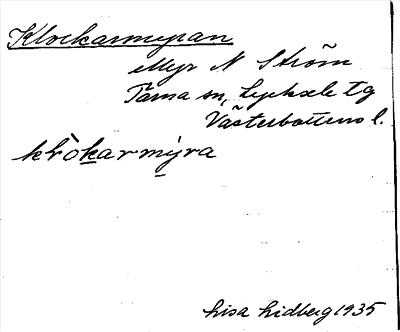 Klockarmyran
Myr N Ström
Tärna sn, Lycksele tg
Västerbottens l.
klòkarmyra
Lisa Lidberg 1935